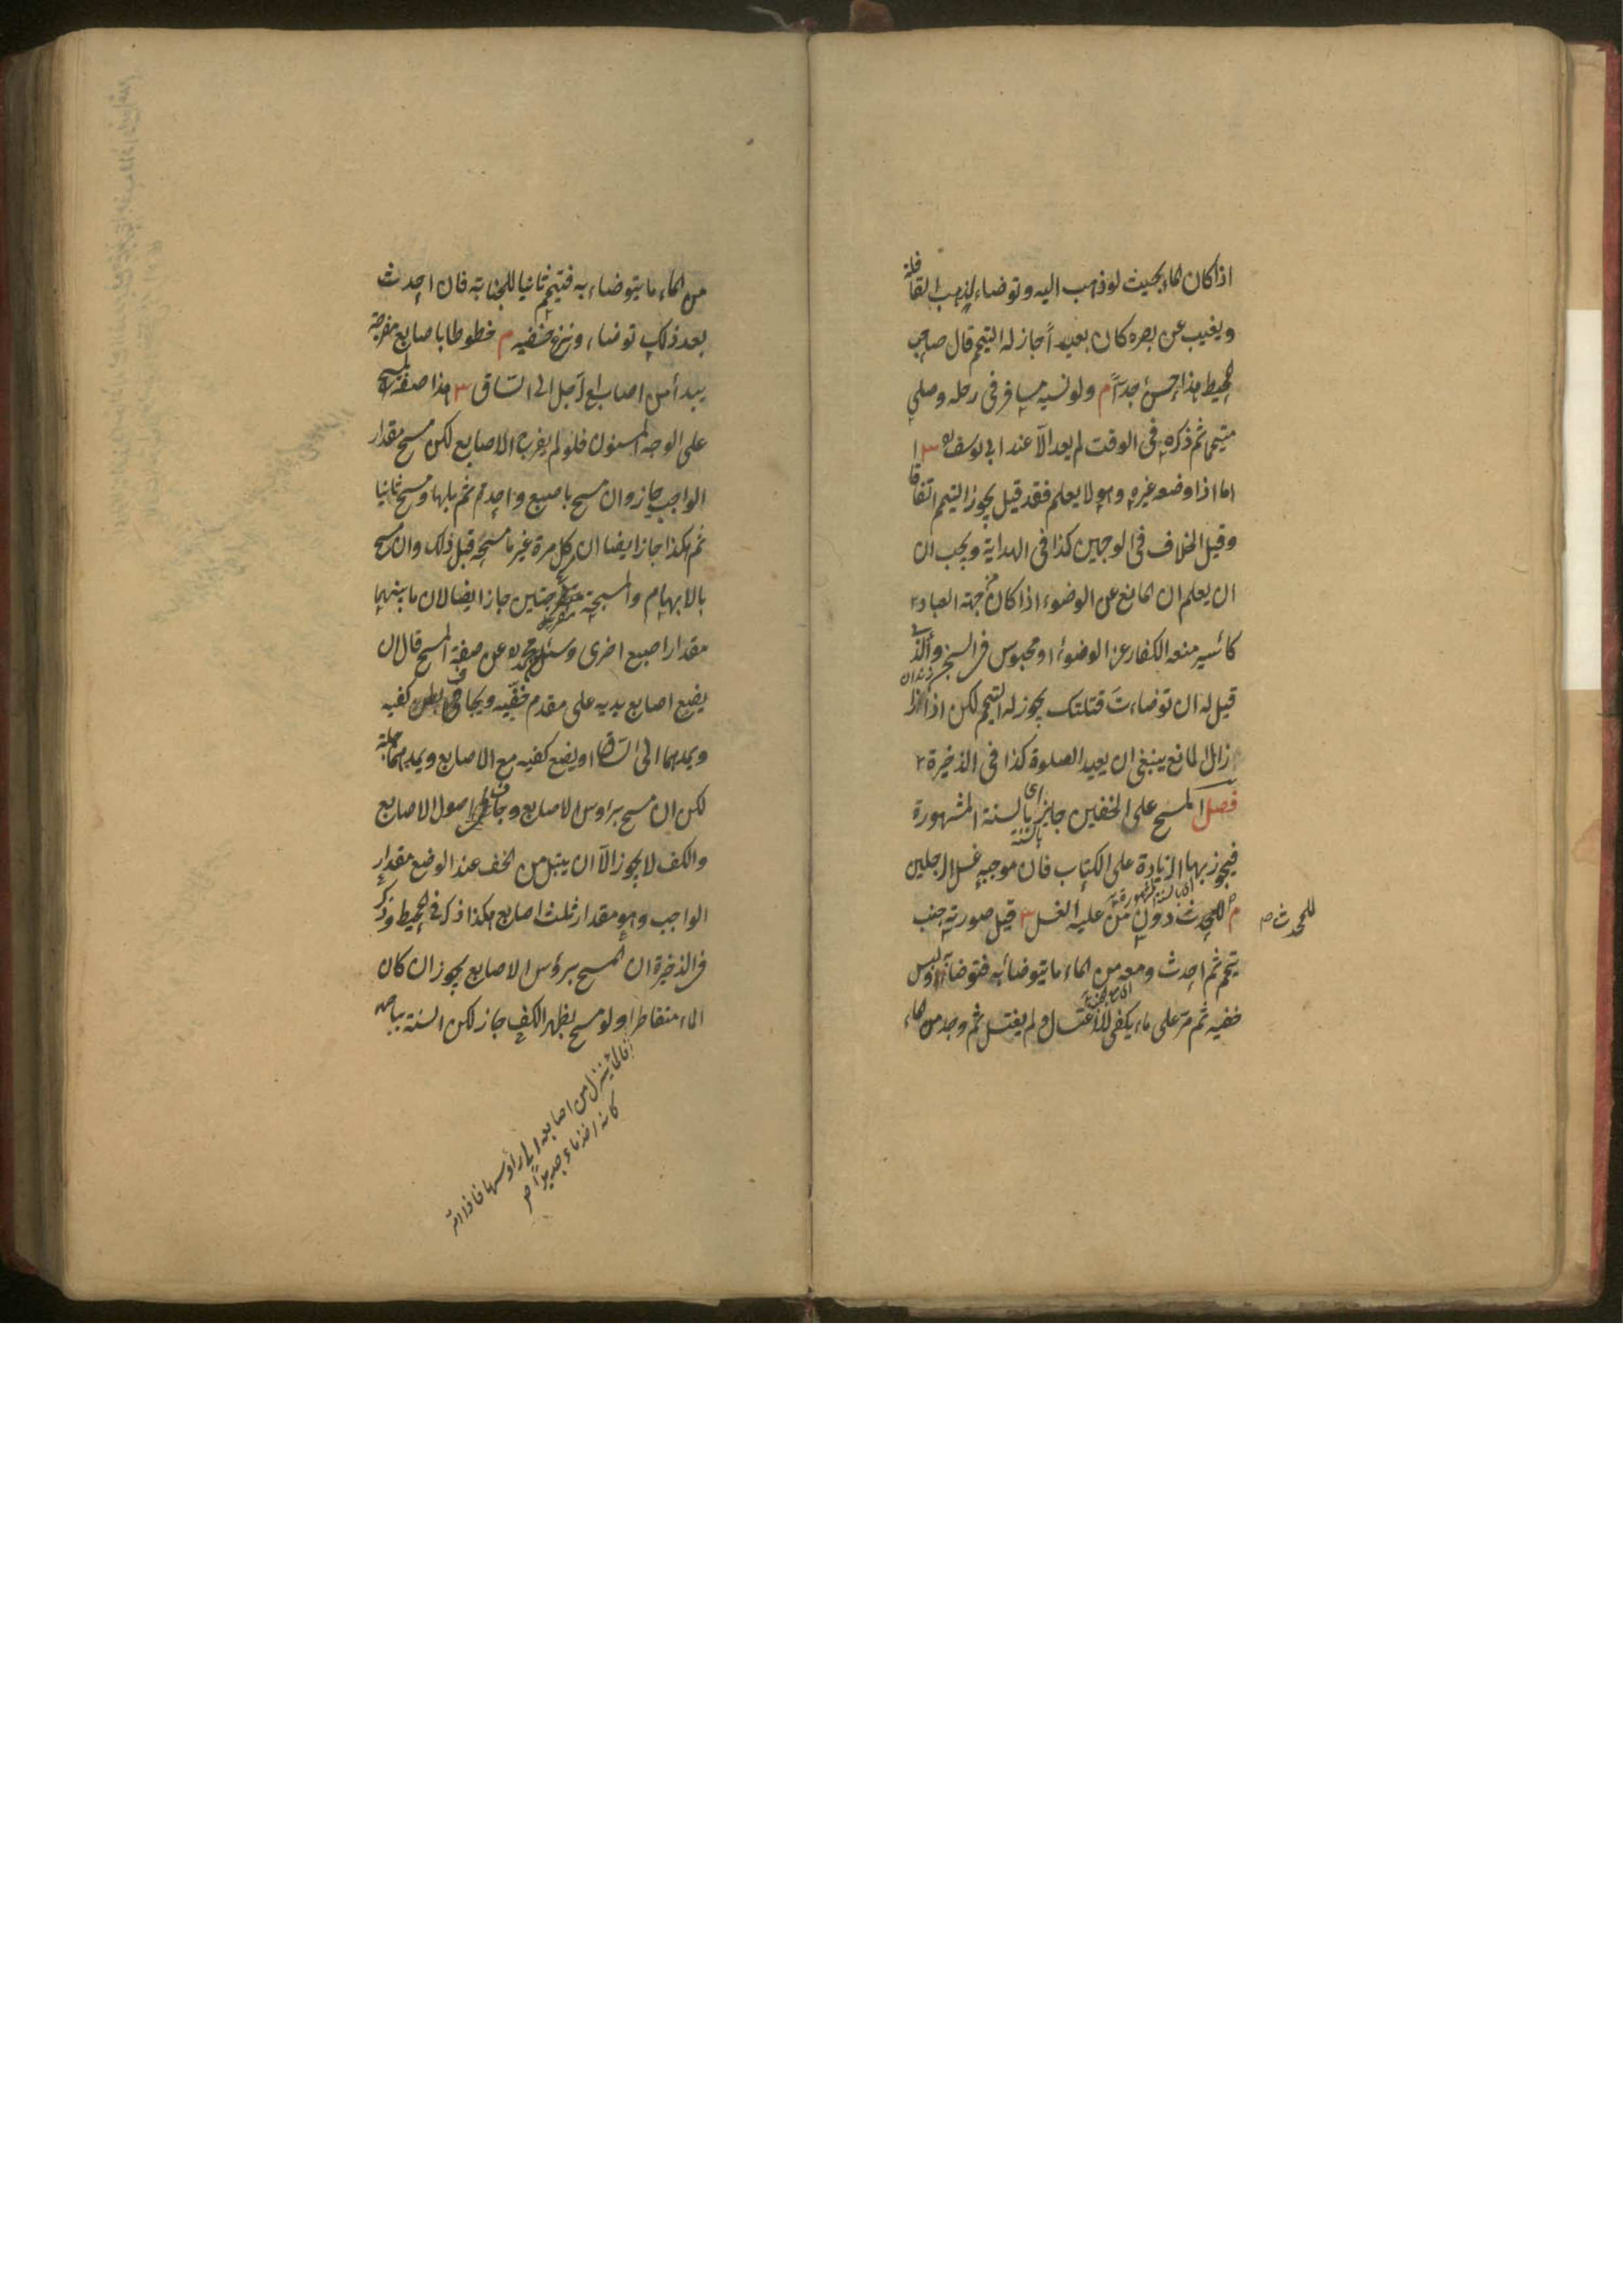 اذا كان الماء بحيث لو ذهب اليه وتوضاء لذهب القافلة
ويغيب عن بصره كان بعيداً جاز له التيمم قال صاحب
المحيط هذا حسنٌ جداً م ولو نسيه مسافر في رحله وصلى
متيمما ثم ذكره في الوقت لم يعد الّا عند ابي يوسف ره ش ا
اما اذا وضعه غيره وهو لا يعلم فقد قيل يجوز التيمم اتفاقا
وقيل الخلاف في الوجهين كذا في الهداية ويجب ان
ان يعلم ان المانع عن الوضوء اذا كان من جهة العباد
كأسير منعه الكفار عن الوضوء او محبوس في السجن والذي
زندان
قيل له ان توضاءتَ قتلتك يجوز له التيمم لكن اذا
زال المانع ينبغي ان يعيد الصلوة كذا في الذخيرة
فصل المسح على الخفين جايز بالسنة اى المشهورة
بالسنة
فيجوز بها الزيادة على الكتاب فان موجبه غسل الرجلين
اى بالسنة المشهورة
م للمحدث دون من عليه الغسل ش قيل صورته جنب
للمحدث ص
تيمم ثم احدث ومعه من الماء ما يتوضأ به فتوضأ ولبس
خفيه ثم مرّ على ماء يكفي للاغتسال ولم يغتسل ثم وجد من الماء
من الماء ما يتوضاء به فتيمم ثانيا للجنابة فان احدث
بعد ذلك توضاء ونزع خفيه م خطوطا باصابع مفرجة
يبدأ من اصابع الرجل الى السّاق ش هذا صفة المسح
على الوجه المسنون فلو لم يفرج الاصابع لكن مسح مقدار
الواجب جاز وان مسح باصبع واحدة ثم بلها ومسح ثانيا
ثم هكذا جاز ايضا ان مسح كل مرة غير ما مسحه قبل ذلك وان مسح
بالابهام والمسبحة منفرجتين جاز ايضا لان ما بينهما
مقدار اصبع اخرى وسئل محمد ره عن صفة المسح قال ان
يضع اصابع يديه على مقدم خفّيه ويجافي بطن كفيه
ويمدهما الى السّاق او يضع كفيه مع الاصابع ويمدهما جملة
لكن ان مسح برؤس الاصابع وجافى اصول الاصابع
والكف لا يجوز الّا ان يبتل من الخف عند الوضع مقدار
الواجب وهو مقدار ثلث اصابع هكذا ذكر في المحيط وذكر
في الذخيرة ان المسح برؤس الاصابع يجوز ان كان
الماء متقاطرا ولو مسح بظهر الكف جاز لكن السنة بباطنه
فالماء ينزل من اصابعه الى رأوسها فاذا مدّ
كانه اخذ ماء جديداً ص